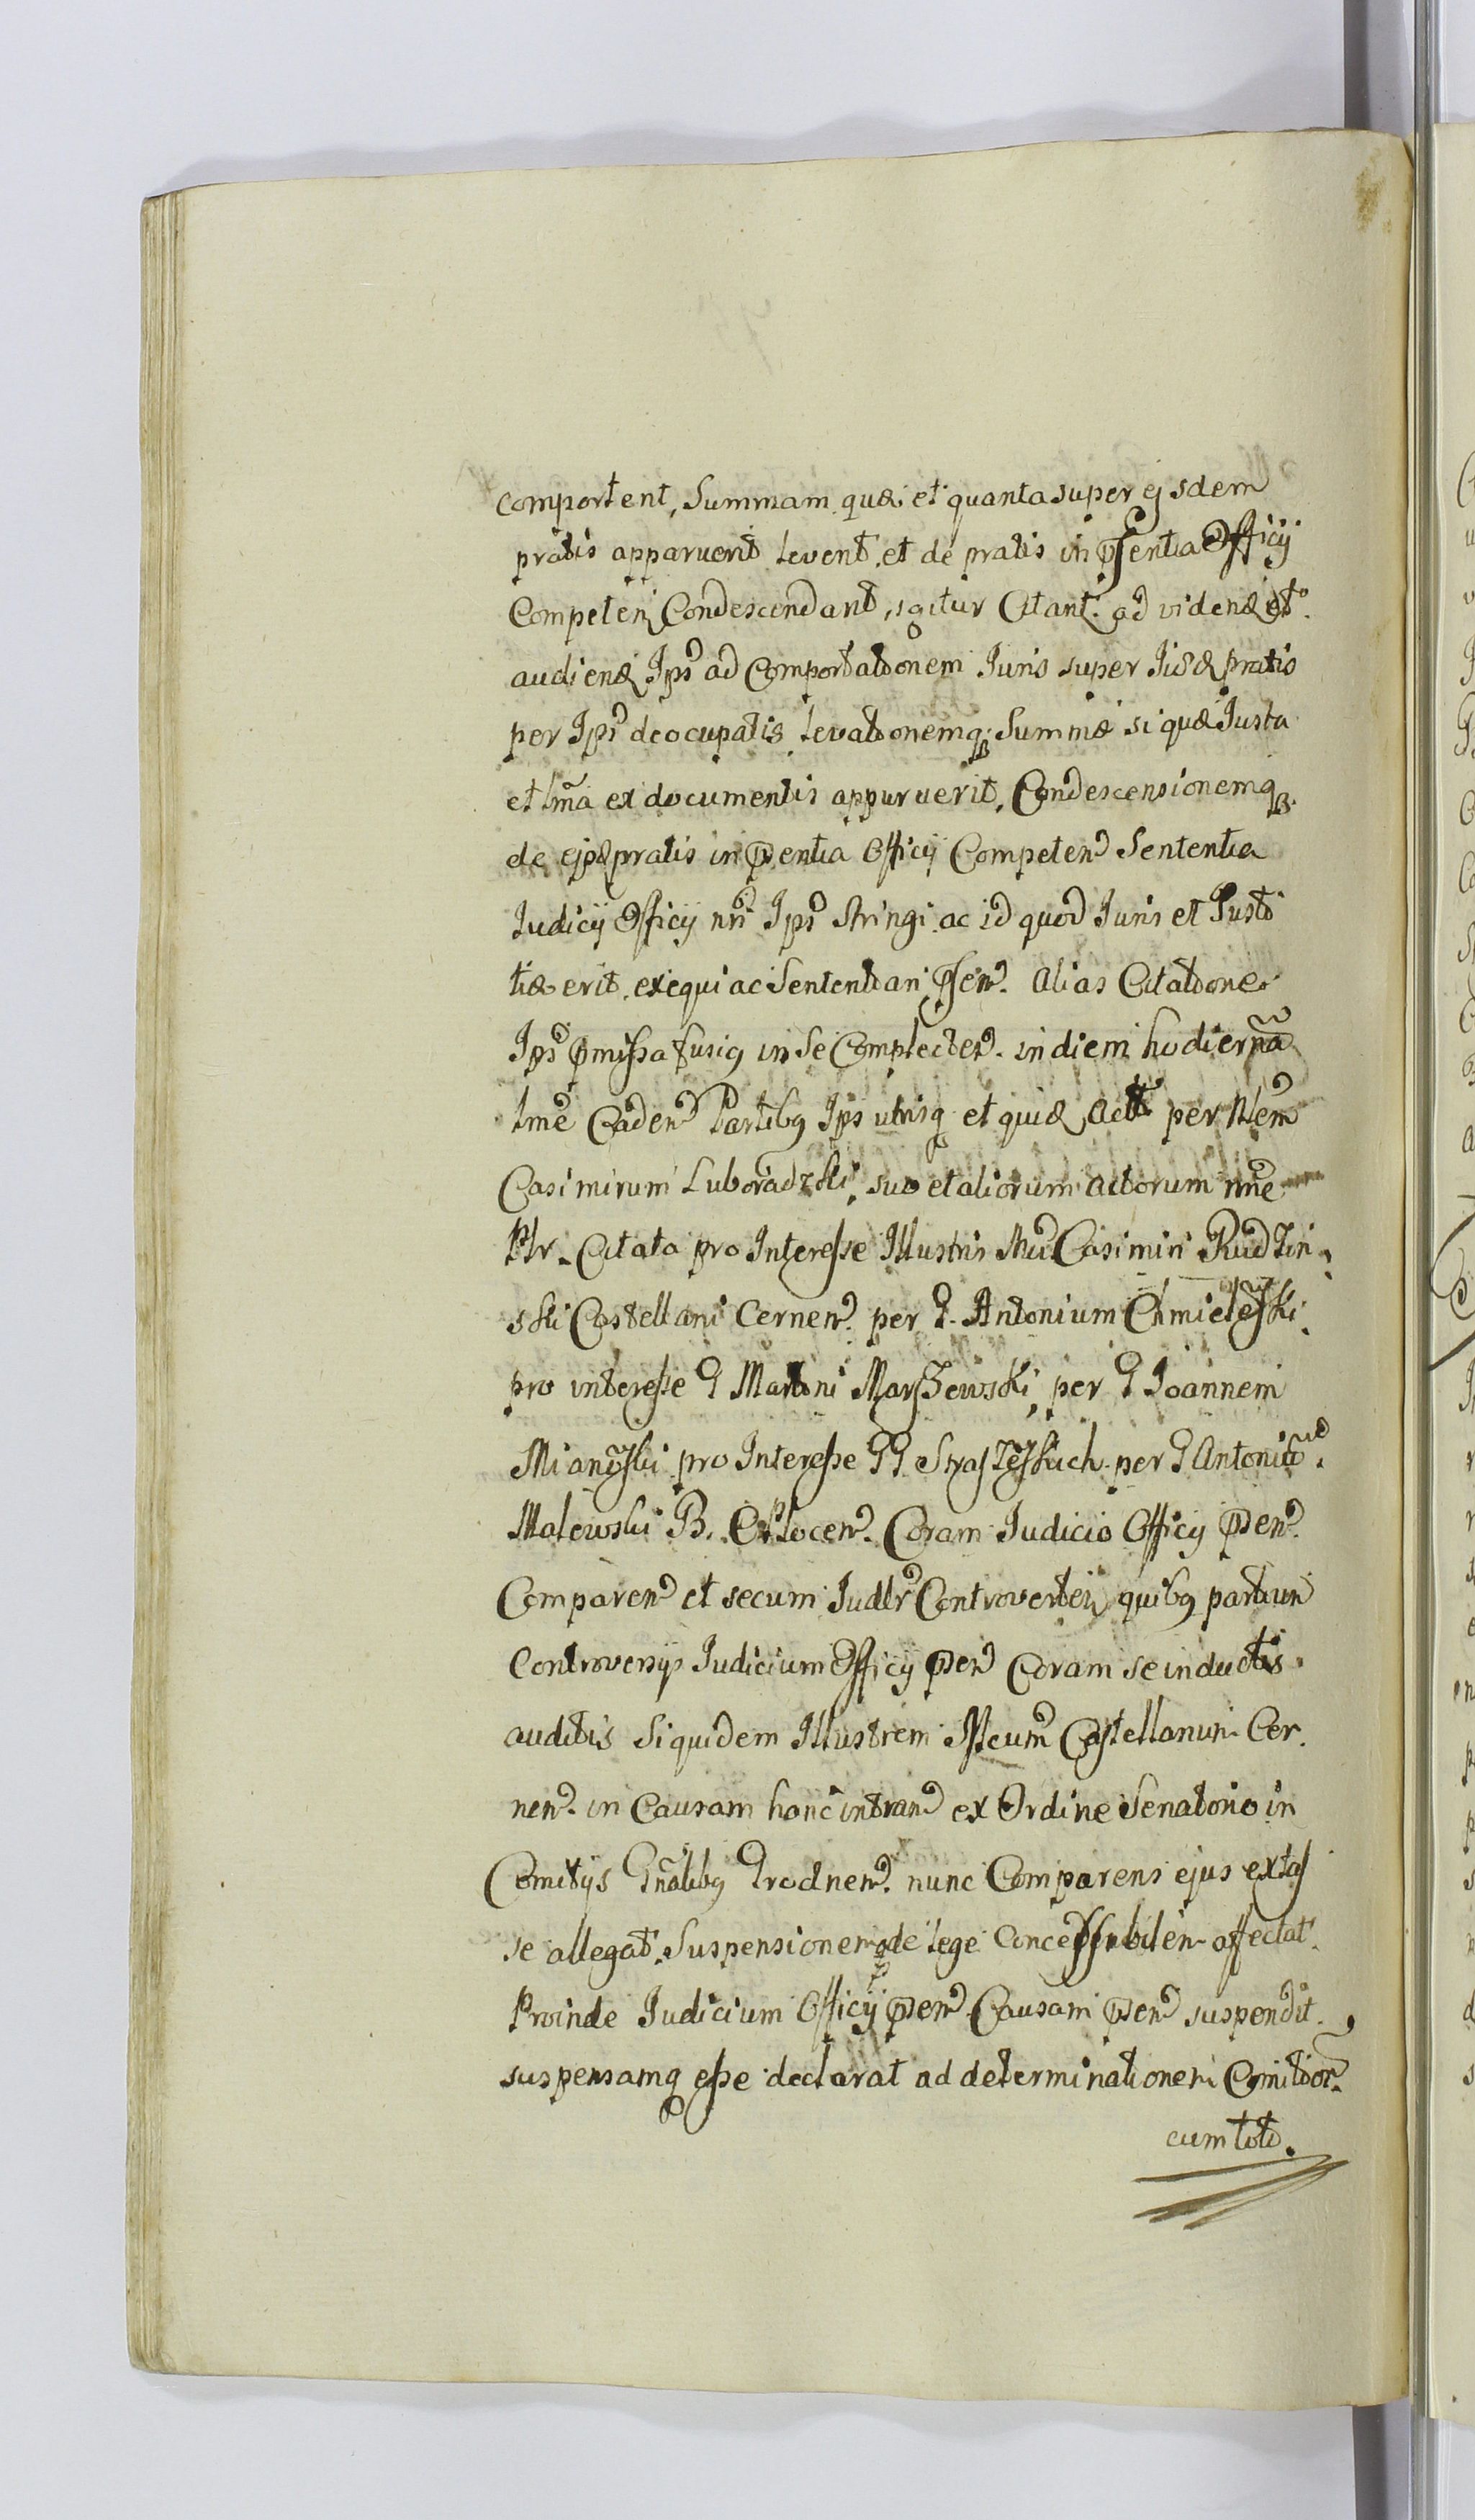 comportent, Summam quæ et quanta super ejsdem
pratis apparuerit levent, et de pratis in pſentia Officij
Competen Condescendant, igitur Citant. ad videnđ et
audienđ Ips ad Comportationem Juris super Jisđ pratis
per Ips deocupatis levationemq; Summæ si quæ Justa
et lma ex documentis appuruerit, Condescensionemq;
de ejsđ pratis in pſentia Officij Competen Sententia
Judicij Officij nri Ips stringi ac id quod Juris et Justi
tiæ erit, exequi ac Sententian pſen. alias Citatione
Ips pmissa fusiq in se Complecten. in diem hodierna
lme Caden Partibq Ips utrisq et quiđ Act per Nlem
Casimirum Luboradzki, suo et aliorum actorum nne
Ptr. Citata pro Interesse Illustris Mci Casimiri Rudzin
ski Castellani Cernen. per G. Antonium Chmielesski
pro interesse G Martini Marszewski, per G Joannem
Mianoski pro Interesse GG Straszeskich per G Antoniu
Malewski B. C. Plocen. Coram Judicio Officij pſen.
Comparen et secum Judlr Controverten quibq partium
Controversijs Judicium Officij pſen Coram se inductis
auditis Siquidem Illustrem Mcum Castellanum Cer
nen. in Causam hanc intran ex Ordine Senatorio in
Comitijs Gnalibq Grodnen. nunc Comparens ejus extas
se allegat. Suspensionemq de lege Concessibilem affectat.
Proinde Judicium Officij pſen Causam pſen suspendit,
suspensamq esse declarat ad determinationem Comitior.
cum toto.